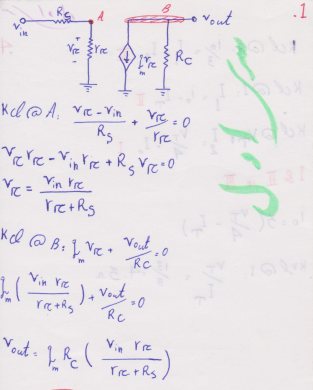 .1
Rs A B vout
vin + vπ - rπ gm vπ Rc
Kcl @ A: (vπ - vin)/Rs + vπ/rπ = 0
vπ rπ - vin rπ + Rs vπ = 0
vπ = vin rπ / (rπ + Rs)
Kcl @ B: gm vπ + vout/Rc = 0
gm (vin rπ / (rπ + Rs)) + vout/Rc = 0
vout = gm Rc (vin rπ / (rπ + Rs))